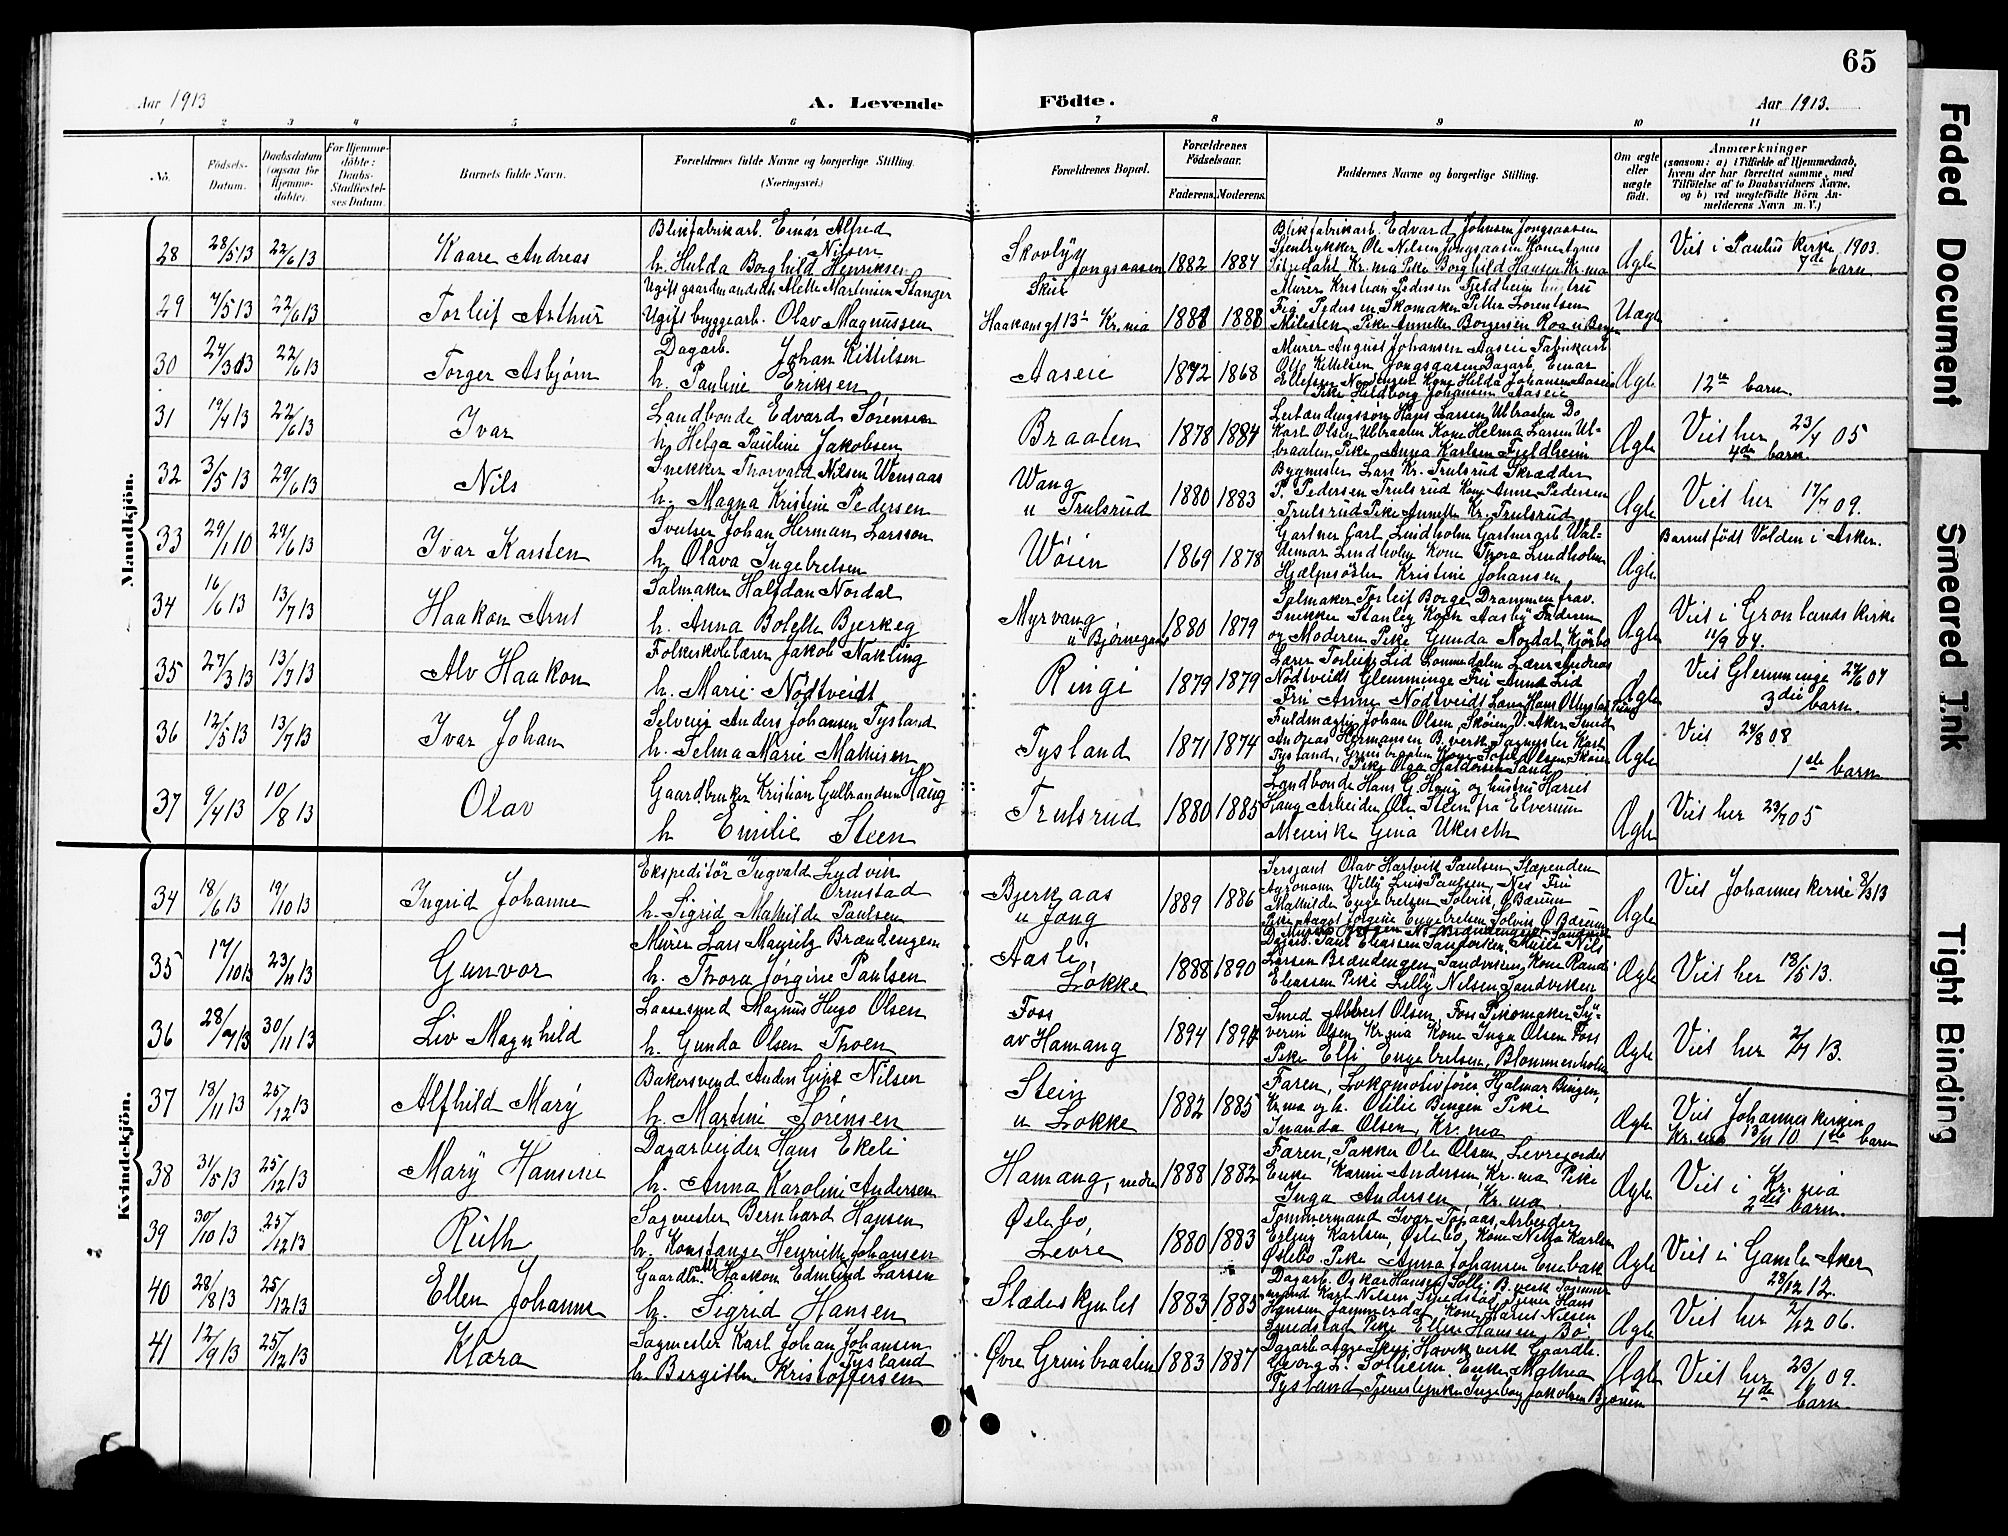 65
Aar 1913
A. Levende
Födte.
Aar 1913.
1 2 3 4 5 6 7 8 9 10 11
No.
Födsels-Datum.
Daabsdatum (ogsaa for Hjemmedöbte).
For Hjemmedöbte: Daabs-Stadfæstelses Datum.
Barnets fulde Navn.
Forældrenes fulde Navne og borgerlige Stilling. (Næringsvei.)
Forældrenes Bopæl.
Forældrenes Födselsaar.
Faderens. Moderens.
Faddernes Navne og borgerlige Stilling.
Om ægte eller uægte födt.
Anmærkninger
(saasom: a) i Tilfælde af Hjemmedaab, hvem der har forrettet samme, med Tilföielse af to Daabsvidners Navne, og b) ved uægtefödte Börn Anmelderens Navn m. V.)
Mandkjön.
28 28/5 13 22/6 13 Kaare Andreas
Blikfabrikarb. Einar Alfred Nilsen
h. Hulda Borghild Henriksen
Skovly Jongsaasen 1882 1884
Blikfabrikarb. Edvard Johnsen Jongsaasen
Stentrykker Ole Nilsen Jongsaasen Kone Agnes
Kr.nia Pike Borghild Hansen Kr.nia
Ægte
Viet i Paulus Kirke 1903.
7de barn
29 7/5 13 22/6 13 Torleif Arthur
Ugift gaardmandsdt. Alette Martinsen Stanger
Ugift bryggearb. Olav Magnussen
Skui
Haakonsgt 13 Kr.nia 1888 1888
Murer Kristian Pedersen Fjeldheim
Pedersen Skomaker Petter Lorentsen
Pike Annette Borgersen
Uægte
30 24/3 13 22/6 13 Torger Asbjørn
Dagarb. Johan Kittilsen
h. Pauline Eriksen
Aaseie 1872 1868
Murer August Johansen Aaseie Fabrikarb
Ole Kittilsen Jongsaasen Dagarb. Einar
Kone Hilda Johansen Aaseie
Pike Hildborg Johansen Aaseie
Ægte
12te barn.
31 19/4 13 22/6 13 Ivar
Landbonde Edvard Sørensen
h. Helga Pauline Jakobsen
Braaten 1878 1884
Hans Larsen Ulbraaten Do
Karl Olsen Ulbraaten Kone Helma Larsen Ulbraaten
Pike Anna Karlsen Fjeldheim
Ægte
Viet her 23/4 05
4de barn.
32 3/5 13 29/6 13 Nils
Snekker Thorvald Nilsen Wensaas
h. Magna Kristine Pedersen
Wang
u Trulsrud 1880 1883
Bygmester Lars Kr. Trulsrud Skrædder
P. Pedersen Trulsrud Kone Anne Pedersen
Trulsrud Pike Annette Kr. Trulsrud
Ægte
Viet her 17/7 09.
33 29/1 10 29/6 13 Ivar Karsten
Sveiser Johan Herman Larsson
h. Olava Ingebretsen
Wøien 1869 1878
Gartner Carl Lindholm Gartnerarb Waldemar
Lindholm Kone Thora Lindholm
Hjælpesøster Kristine Johansen
Ægte
Barnet født Volden i Asker.
34 16/6 13 13/7 13 Haakon Arnt
Salmaker Halfdan Nordal
h. Anna Bolette Bjerkeg
Myrvang
u Bjørnegaard 1880 1879
Salmaker Torleif Borge Drammen frav.
Snekker Stanley Koph Aasby Faderen
og Moderen Pike Gunda Nordal Kjørbo
Ægte
Viet i Grønlands Kirke
11/9 04.
35 27/3 13 13/7 13 Alv Haakon
Folkeskolelærer Jakob Nakling
h. Marie Nødtveidt
Ringi 1879 1879
Lærer Torleif Lid Lommedalen Lærer Andreas
Nødtveidt Glemminge Fru Anna Lid
Frk Anne Nødtveidt
Ægte
Viet Glemminge 24/6 04
3die barn.
36 12/5 13 13/7 13 Ivar Johan
Selveier Anders Johansen Tysland
h. Selma Marie Mathisen
Tysland 1871 1874
Fuldmægtig Johan Olsen, Skøien V. Aker Smed
Andreas Hermansen B.verk Sagmester Karl
Tysland, Grinibraaten Kone Sofie Olsen Skøien
Pike Olga Haldorsen Sand
Ægte
Viet 24/8 08
1ste barn
37 9/4 13 10/8 13 Olav
Gaardbruker Kristian Gulbrandsen Haug
h Emilie Steen
Trulsrud 1880 1885
Landbonde Hans G. Haug og hustru Harriet
Haug Arbeider Ole Steen fra Elverum
Meierske Gina Ukeseth
Ægte
Viet her 23/7 05
Kvindekjön.
34 18/6 13 19/10 13 Ingrid Johanne
Ekspeditör Ingvald Ludvik Ormstad
h. Sigrid Mathilde Paulsen
Bjerkaas
u Jong 1889 1886
Sersjant Olav Hartvik Paulsen, Slæpenden
Agronom Willy Paulsen, Nes Fru
Mathilde Engebretsen Solvik, Ø Bærum
Pike Aagot Jorgine Engebretsen Solvik Ø Bærum
Ægte
Viet Johannes kirke 8/3 13
35 17/10 13 23/11 13 Gunvor
Murer Lars Mauritz Brændengen
h. Thora Jørgine Paulsen
Aasli,
Løkke 1888 1890
Dagarb. Paul Eliassen Sandviken, Murer Nils
Larsen Brændengen, Sandviken, Kone Randi
Eliassen Pike Lilly Nilsen Sandviken
Ægte
Viet her 18/5 13.
36 28/7 13 30/11 13 Liv Magnhild
Laasesmed Magnus Hugo Olsen
h. Gunda Olsen Thoen
Foss
av Hamang 1894 1894
Smed Albert Olsen, Foss Pikomaker Syverin
Olsen Kr.nia Kone Inga Olsen Foss
Pike Elfi Engebretsen, Blommenholm
Ægte
Viet her 2/7 13.
37 13/11 13 25/12 13 Alfhild Mary
Bakersvend Anders Gipt Nilsen
h. Martine Sørensen
Stein
u Løkke 1882 1885
Faren, Lokomotivfører Hjalmar Bingen,
Kr.nia og h. Otilie Bingen Pike
Inanda Olsen, Kr.nia
Ægte
Viet Johanneskirken
Kr.nia 13/11 10 1ste barn
38 31/5 13 25/12 13 Mary Hansine
Dagarbeider Hans Ekeli
h. Anna Karoline Andersen
Hamang, nedre 1888 1882
Faren, Pakker Ole Olsen, Levregordet
Enke Karine Andersen, Kr.nia Pike
Inga Andersen Kr.nia
Ægte
Viet i Kr.nia
2det barn.
39 30/10 13 25/12 13 Ruth
Sagmester Bernhard Hansen
h. Konstanse Henriette Johansen
Østebø,
Levre 1880 1883
Tømmermand Ivar Topaas, Arbeider
Erling Karlsen, Østebø, Kone Nelga Karlsen
Østebø Pike Anna Johansen Enebak
Ægte
Viet i Gamle Aker
28/12 12.
40 28/8 13 25/12 13 Ellen Johanne
Gaardbr. Alf Haakon Edmund Larsen
h. Sigrid Hansen
Slædeskjulet 1883 1885
Dagarb. Oskar Hansen, Solli B.verk Tømmermand
Karl Nilsen Smedstad Hans
Hansen Jammerdal Kone Harriet Nilsen
Smedstad Pike Ellen Hansen, Bø
Ægte
Viet her 2/12 06.
41 12/9 13 25/12 13 Klara
Sagmester Karl Johan Johansen Tysland
h. Bergitte Kristoffersen
Øvre Grinibraaten 1883 1887
Dagarb. Aage Skui, Høvik verk Gaardbr.
Georg L. Solheim Enke Mathea
Tysland Tjenestepike Ingeborg Jakobsen Bjørum
Ægte
Viet her 23/1 09.
4de barn.
Faded Document
Smeared Ink
Tight Binding